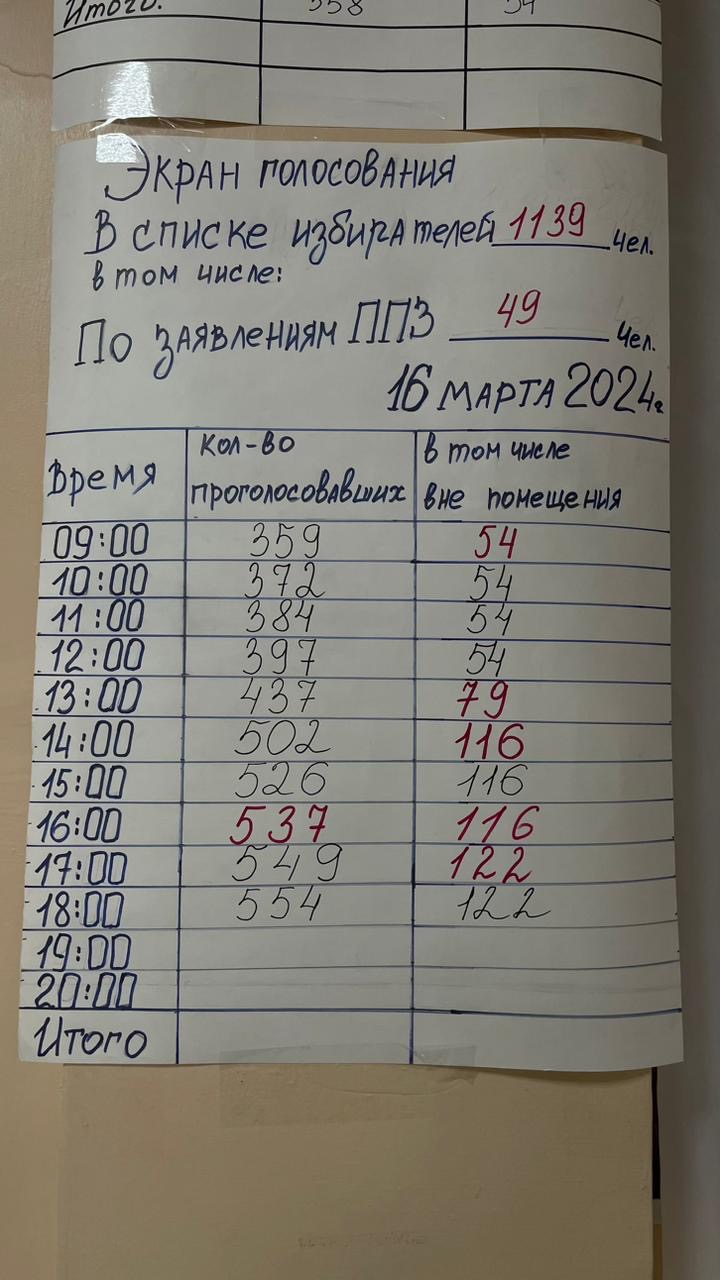 Итого. 358 54
Экран голосования
В списке избирателей 1139 чел.
в том числе:
По заявлениям ППЗ 49 чел.
16 марта 2024г.
Время кол-во проголосовавших в том числе вне помещения
09:00 359 54
10:00 372 54
11:00 384 54
12:00 397 54
13:00 437 79
14:00 502 116
15:00 526 116
16:00 537 116
17:00 549 122
18:00 554 122
19:00
20:00
Итого